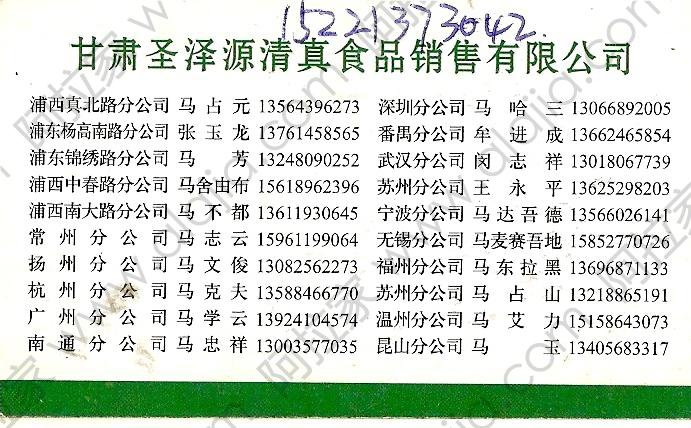 15221373042
甘肃圣泽源清真食品销售有限公司
浦西真北路分公司 马占元 13564396273 深圳分公司 马哈三 13066892005
浦东杨高南路分公司 张玉龙 13761458565 番禺分公司 牟进成 13662465854
浦东锦绣路分公司 马芳 13248090252 武汉分公司 闵志祥 13018067739
浦西中春路分公司 马舍由布 15618962396 苏州分公司 王永平 13625298203
浦西南大路分公司 马不都 13611930645 宁波分公司 马达吾德 13566026141
常州分公司 马志云 15961199064 无锡分公司 马麦赛吾地 15852770726
扬州分公司 马文俊 13082562273 福州分公司 马东拉黑 13696871133
杭州分公司 马克夫 13588466770 苏州分公司 马占山 13218865191
广州分公司 马学云 13924104574 温州分公司 马艾力 15158643073
南通分公司 马忠祥 13003577035 昆山分公司 马玉 13405683317
阿拉家 www.dldjia.com